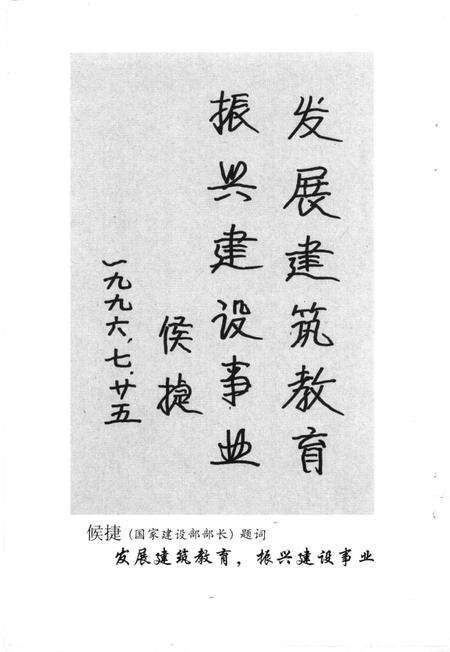 发展建筑教育
振兴建设事业
侯捷
一九九六.七.廿五
候捷（国家建设部部长）题词
发展建筑教育，振兴建设事业